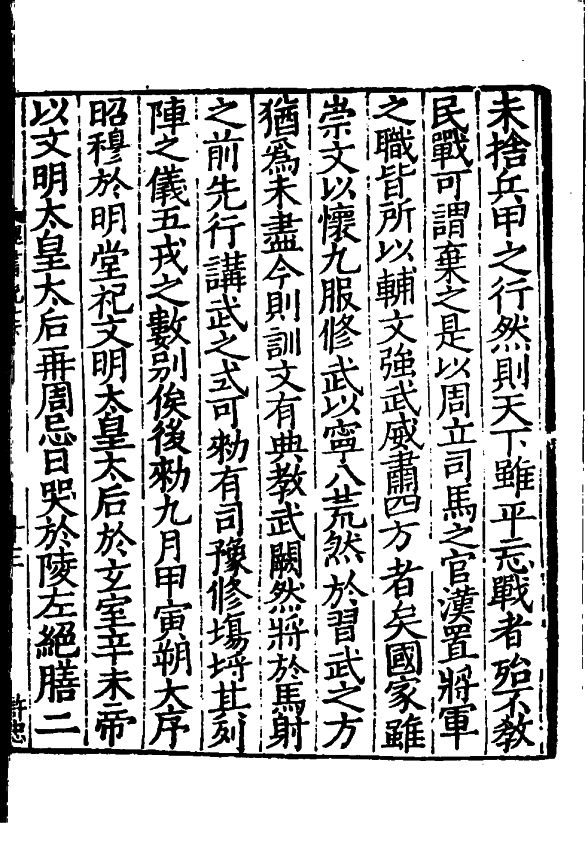 未捨兵甲之行然則天下雖平忘戰者殆不教
民戰可謂棄之是以周立司馬之官漢置將軍
之職皆所以輔文強武威肅四方者矣國家雖
崇文以懷九服修武以寧八荒然於習武之方
猶爲未盡今則訓文有典教武闕然將於馬射
之前先行講武之式可勑有司豫修塲埒其列
陣之儀五戎之數別俟後勑九月甲寅朔大序
昭穆於明堂祀文明太皇太后於玄室辛未帝
以文明太皇太后再周忌日哭於陵左絕膳二
許忠